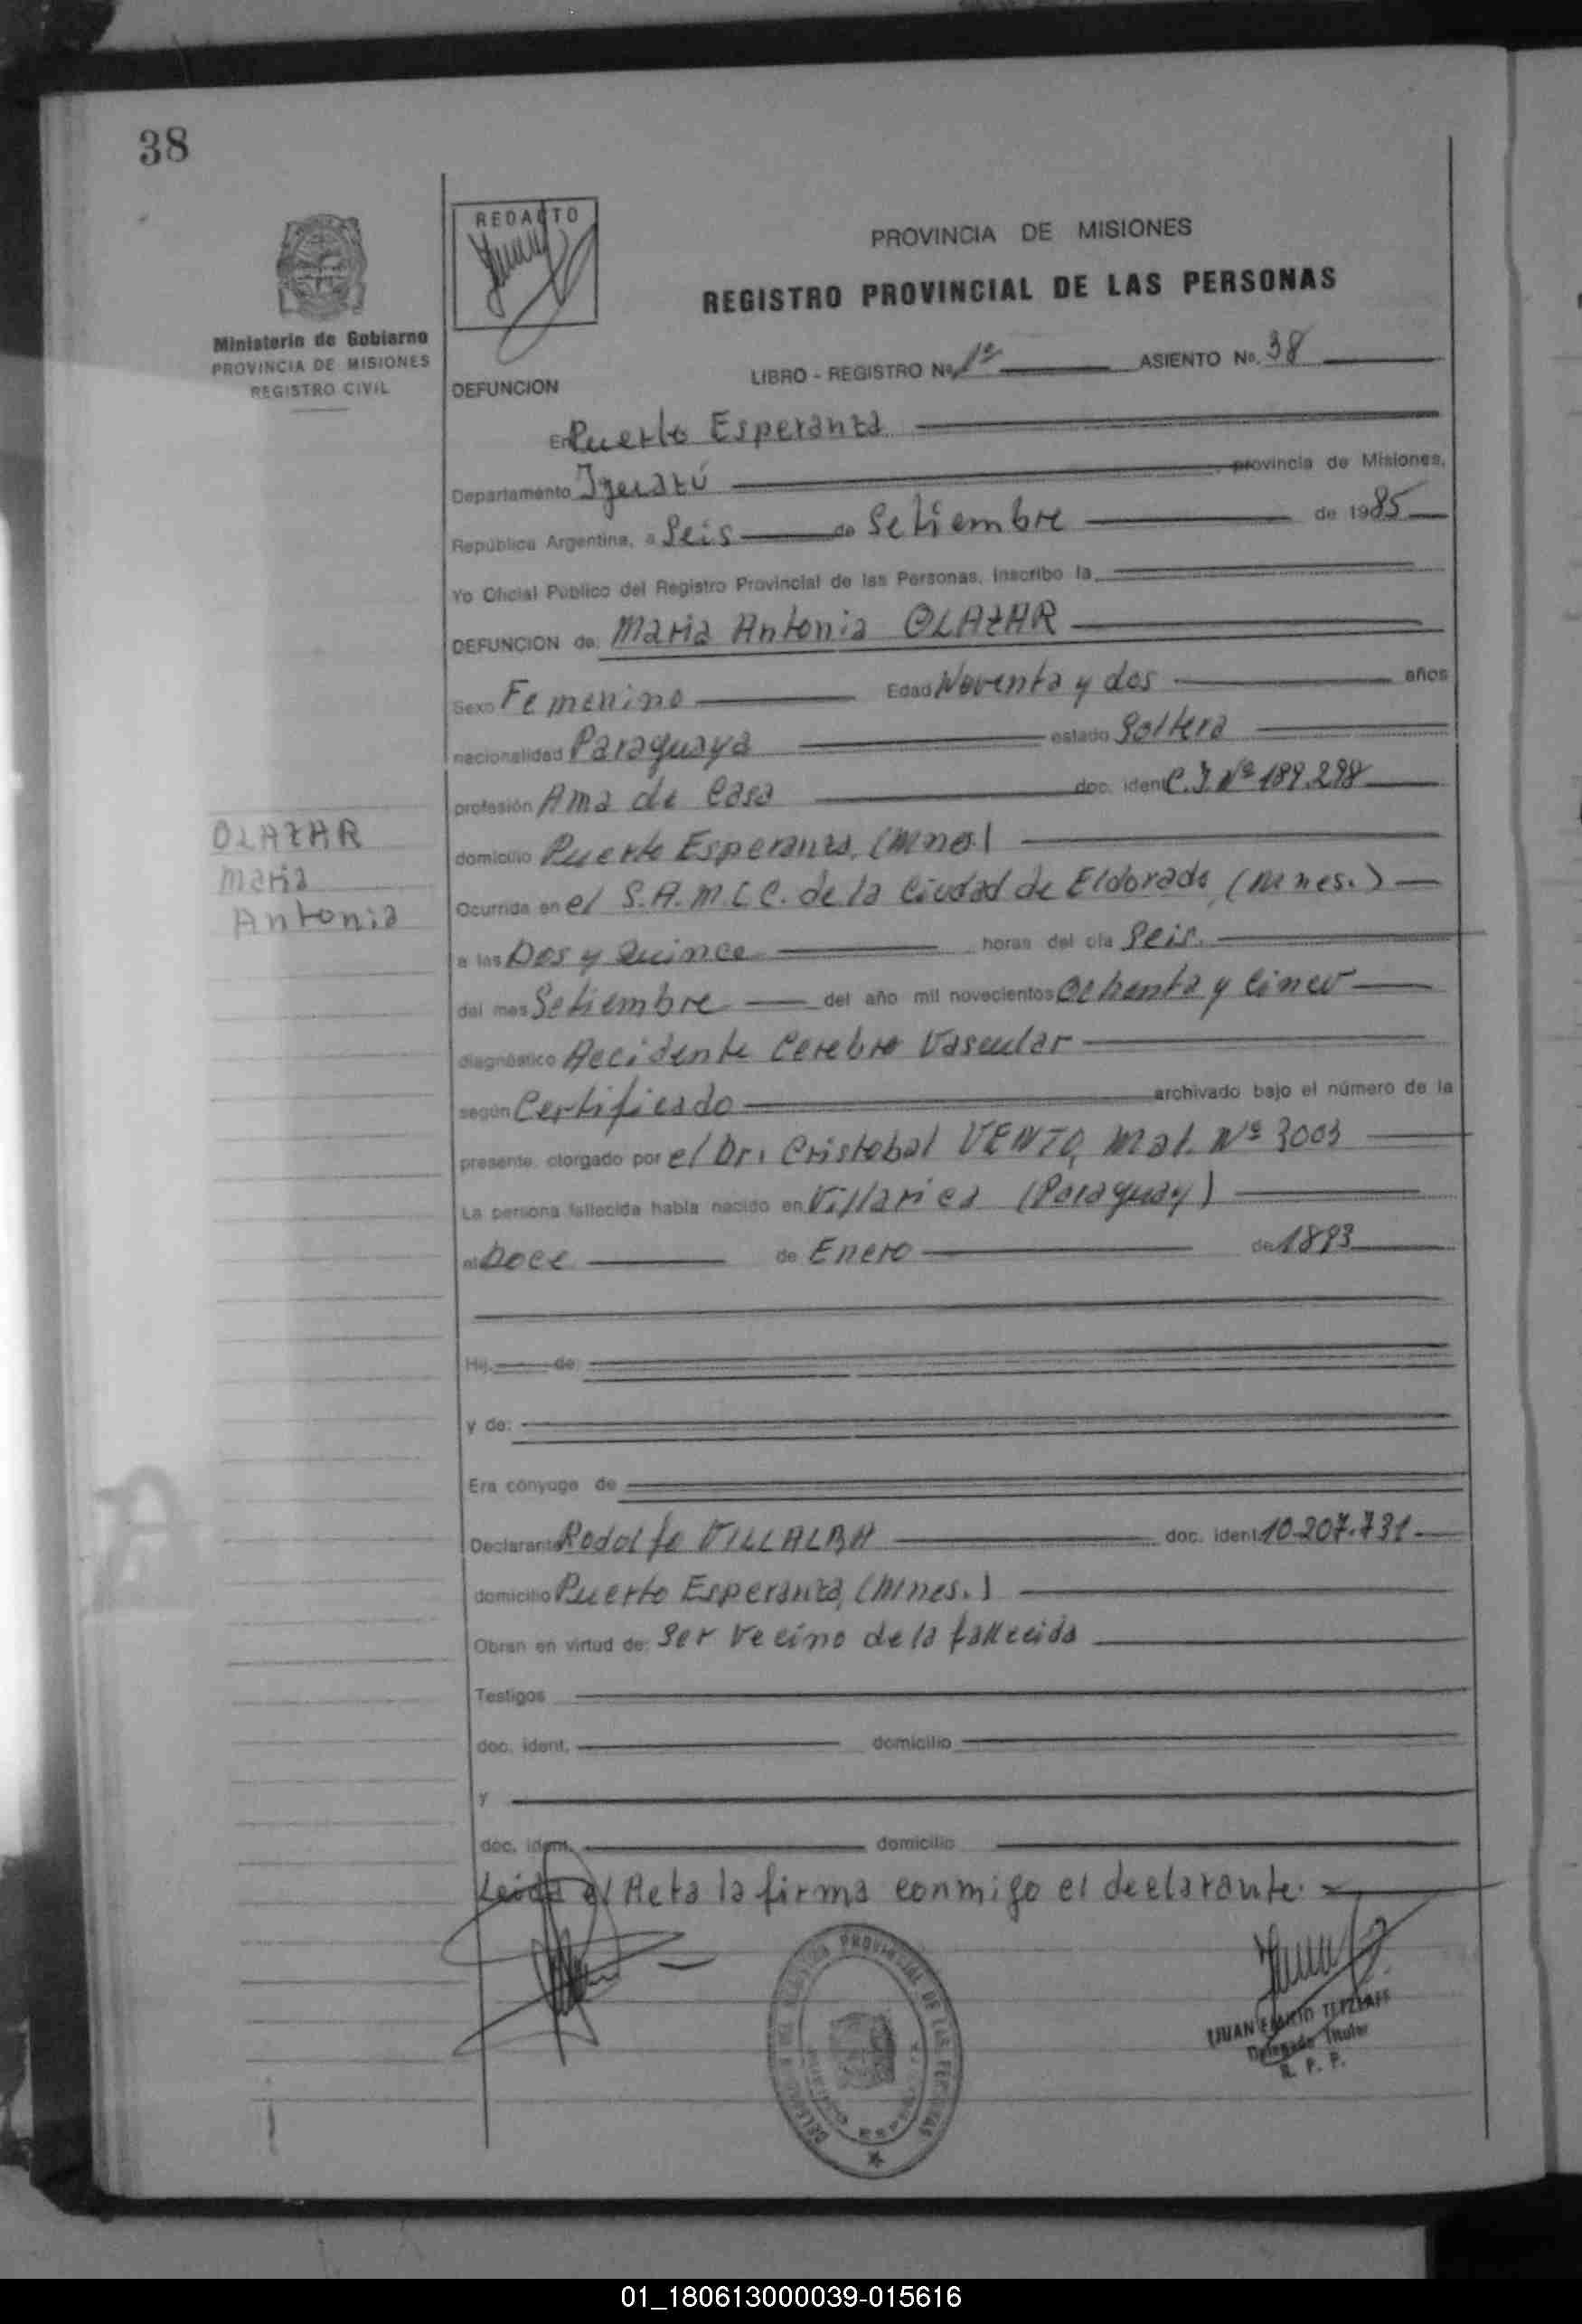 38
REDACTO
PROVINCIA DE MISIONES
REGISTRO PROVINCIAL DE LAS PERSONAS
Ministerio de Gobierno
PROVINCIA DE MISIONES
REGISTRO CIVIL
LIBRO - REGISTRO No. 1º ASIENTO No. 38
DEFUNCION
En Puerto Esperanza
Departamento Iguazú provincia de Misiones,
República Argentina, a Seis de Setiembre de 1985
Yo Oficial Público del Registro Provincial de las Personas, inscribo la
DEFUNCION de: Maria Antonia OLAZAR
Sexo Femenino Edad Noventa y dos años
nacionalidad Paraguaya estado Soltera
profesión Ama de Casa doc. ident. C.I. Nº 189.298
OLAZAR
Maria
Antonia
domicilio Puerto Esperanza, (Mnes.)
Ocurrida en el S.A.M.I.C. de la Ciudad de Eldorado, (Mnes.)
a las Dos y Quince horas del día Seis
del mes Setiembre del año mil novecientos Ochenta y Cinco
diagnóstico Accidente Cerebro Vascular
según Certificado archivado bajo el número de la
presente, otorgado por el Dr. Cristobal VENTO, Mat. Nº 3003
La persona fallecida había nacido en Villarica (Paraguay)
el Doce de Enero de 1893
Hij de:
y de:
Era cónyuge de
Declarante Rodolfo VILLALBA doc. ident. 10.207.731
domicilio Puerto Esperanza, (Mnes.)
Obran en virtud de: Ser Vecino de la fallecida
Testigos
doc. ident. domicilio
y
doc. ident. domicilio
Leida el Acta la firma conmigo el declarante.
REGISTRO PROVINCIAL DE LAS PERSONAS
JUAN EMILIO TETZLAFF
Delegado Titular
R. P. P.
01_180613000039-015616